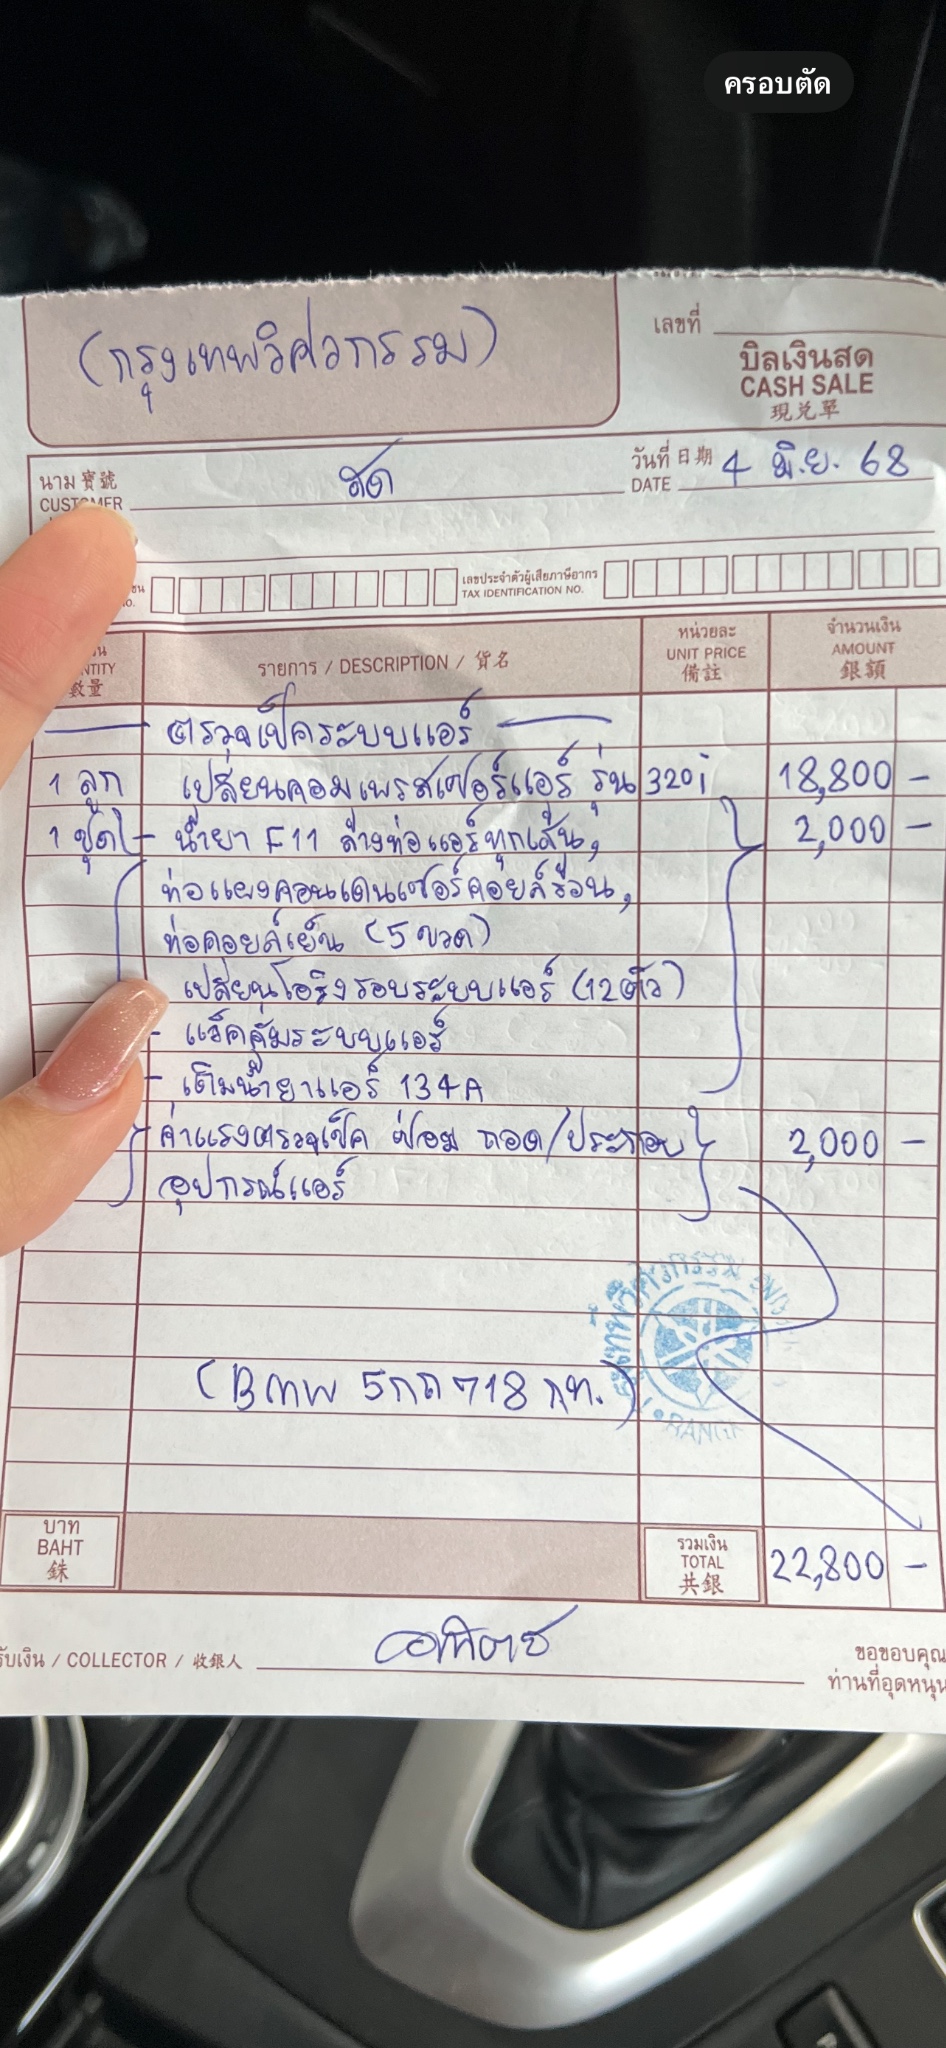 ครอบตัด
(กรุงเทพวิศวกรรม)
เลขที่
บิลเงินสด
CASH SALE
現兌單
นาม 寶號
CUSTOMER
สด
วันที่ 日期 4 มิ.ย. 68
DATE
เลขประจำตัวผู้เสียภาษีอากร
TAX IDENTIFICATION NO.
數量
รายการ / DESCRIPTION / 貨名
หน่วยละ
UNIT PRICE
備註
จำนวนเงิน
AMOUNT
銀額
ตรวจเช็คระบบแอร์
1 ลูก เปลี่ยนคอมเพรสเซอร์แอร์ รุ่น 320i 18,800 -
1 ชุด - น้ำยา F11 ล้างท่อแอร์ทุกเส้น, 2,000 -
ท่อแผงคอนเดนเซอร์คอยล์ร้อน,
ท่อคอยล์เย็น (5 ขวด)
เปลี่ยนโอริงรอบระบบแอร์ (12 ตัว)
- แว็คคั่มระบบแอร์
- เติมน้ำยาแอร์ 134A
- ค่าแรงตรวจเช็ค ซ่อม ถอด/ประกอบ 2,000 -
อุปกรณ์แอร์
(BMW 5กถ 718 ก.ท.)
บาท
BAHT
銖
รวมเงิน
TOTAL
共銀
22,800 -
รับเงิน / COLLECTOR / 收銀人
ขอขอบคุณ
ท่านที่อุดหนุน